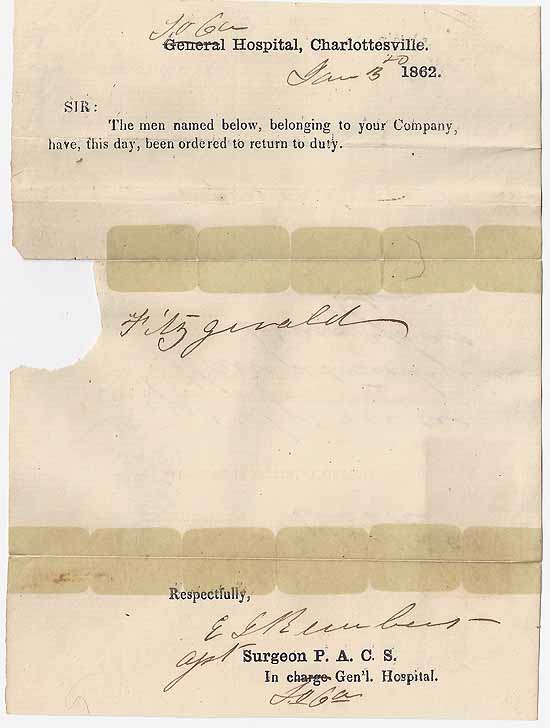 General Hospital, Charlottesville.
Jan 1862.
SIR:
The men named below, belonging to your Company,
have, this day, been ordered to return to duty.
Fitzgerald
Respectfully,
Surgeon P. A. C. S.
In charge Gen'l. Hospital.